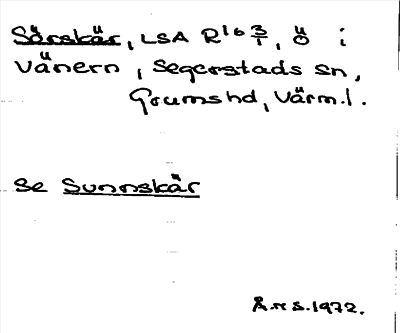 Sörskär, LSA R16 3/1, ö i
Vänern, Segerstads sn,
Grums hd, Värml.
Se Sunnskär
Å.n S. 1972.